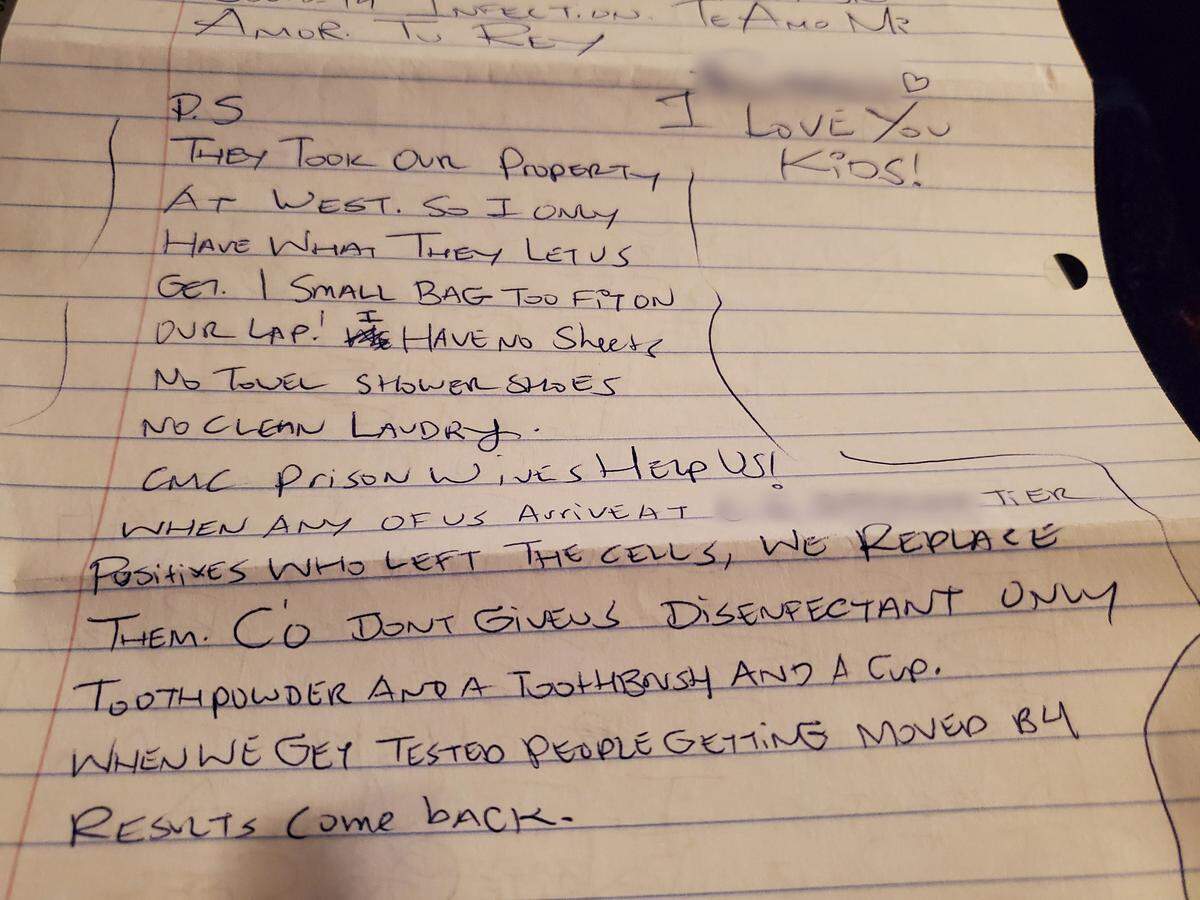 Infection. Te Amo Mi
Amor. Tu Rey
P.S
I Love You
Kids!
They Took our Property
At West. So I only
Have What They Let us
Get. 1 Small Bag Too Fit on
our Lap! I Have no Sheets
No Towel shower shoes
No clean Laudry.
CMC Prison Wives Help Us!
When any of us Arrive at Tier
Positives who left the cells, we Replace
Them. C'o Dont Give us Disenfectant only
Toothpowder and a Toothbrush and a Cup.
When we Get Tested People Getting moved By
Results Come back.